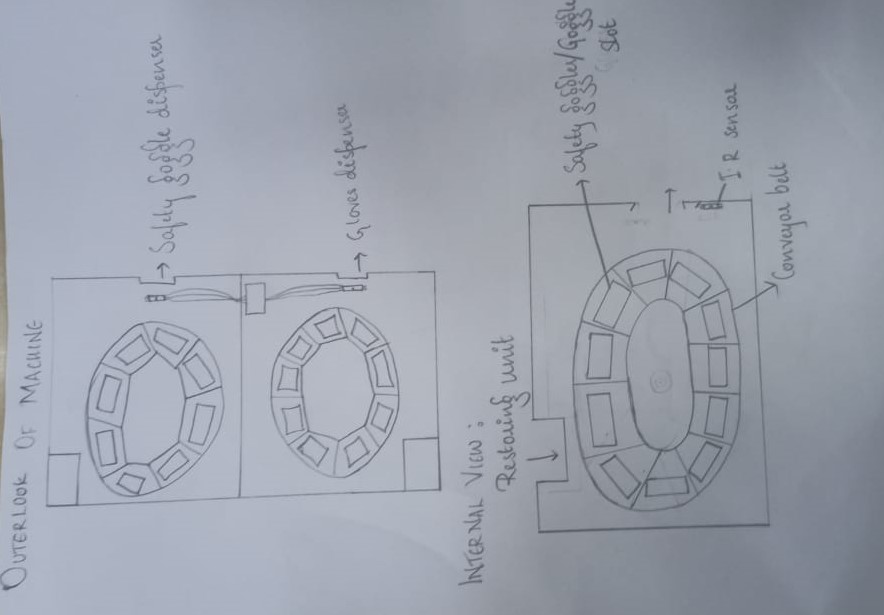 OUTERLOOK OF MACHINE
Safety goggle dispenser
Gloves dispenser
INTERNAL VIEW:
Restoring unit
Safety goggles/Goggle
Slot
I.R sensor
Conveyor belt